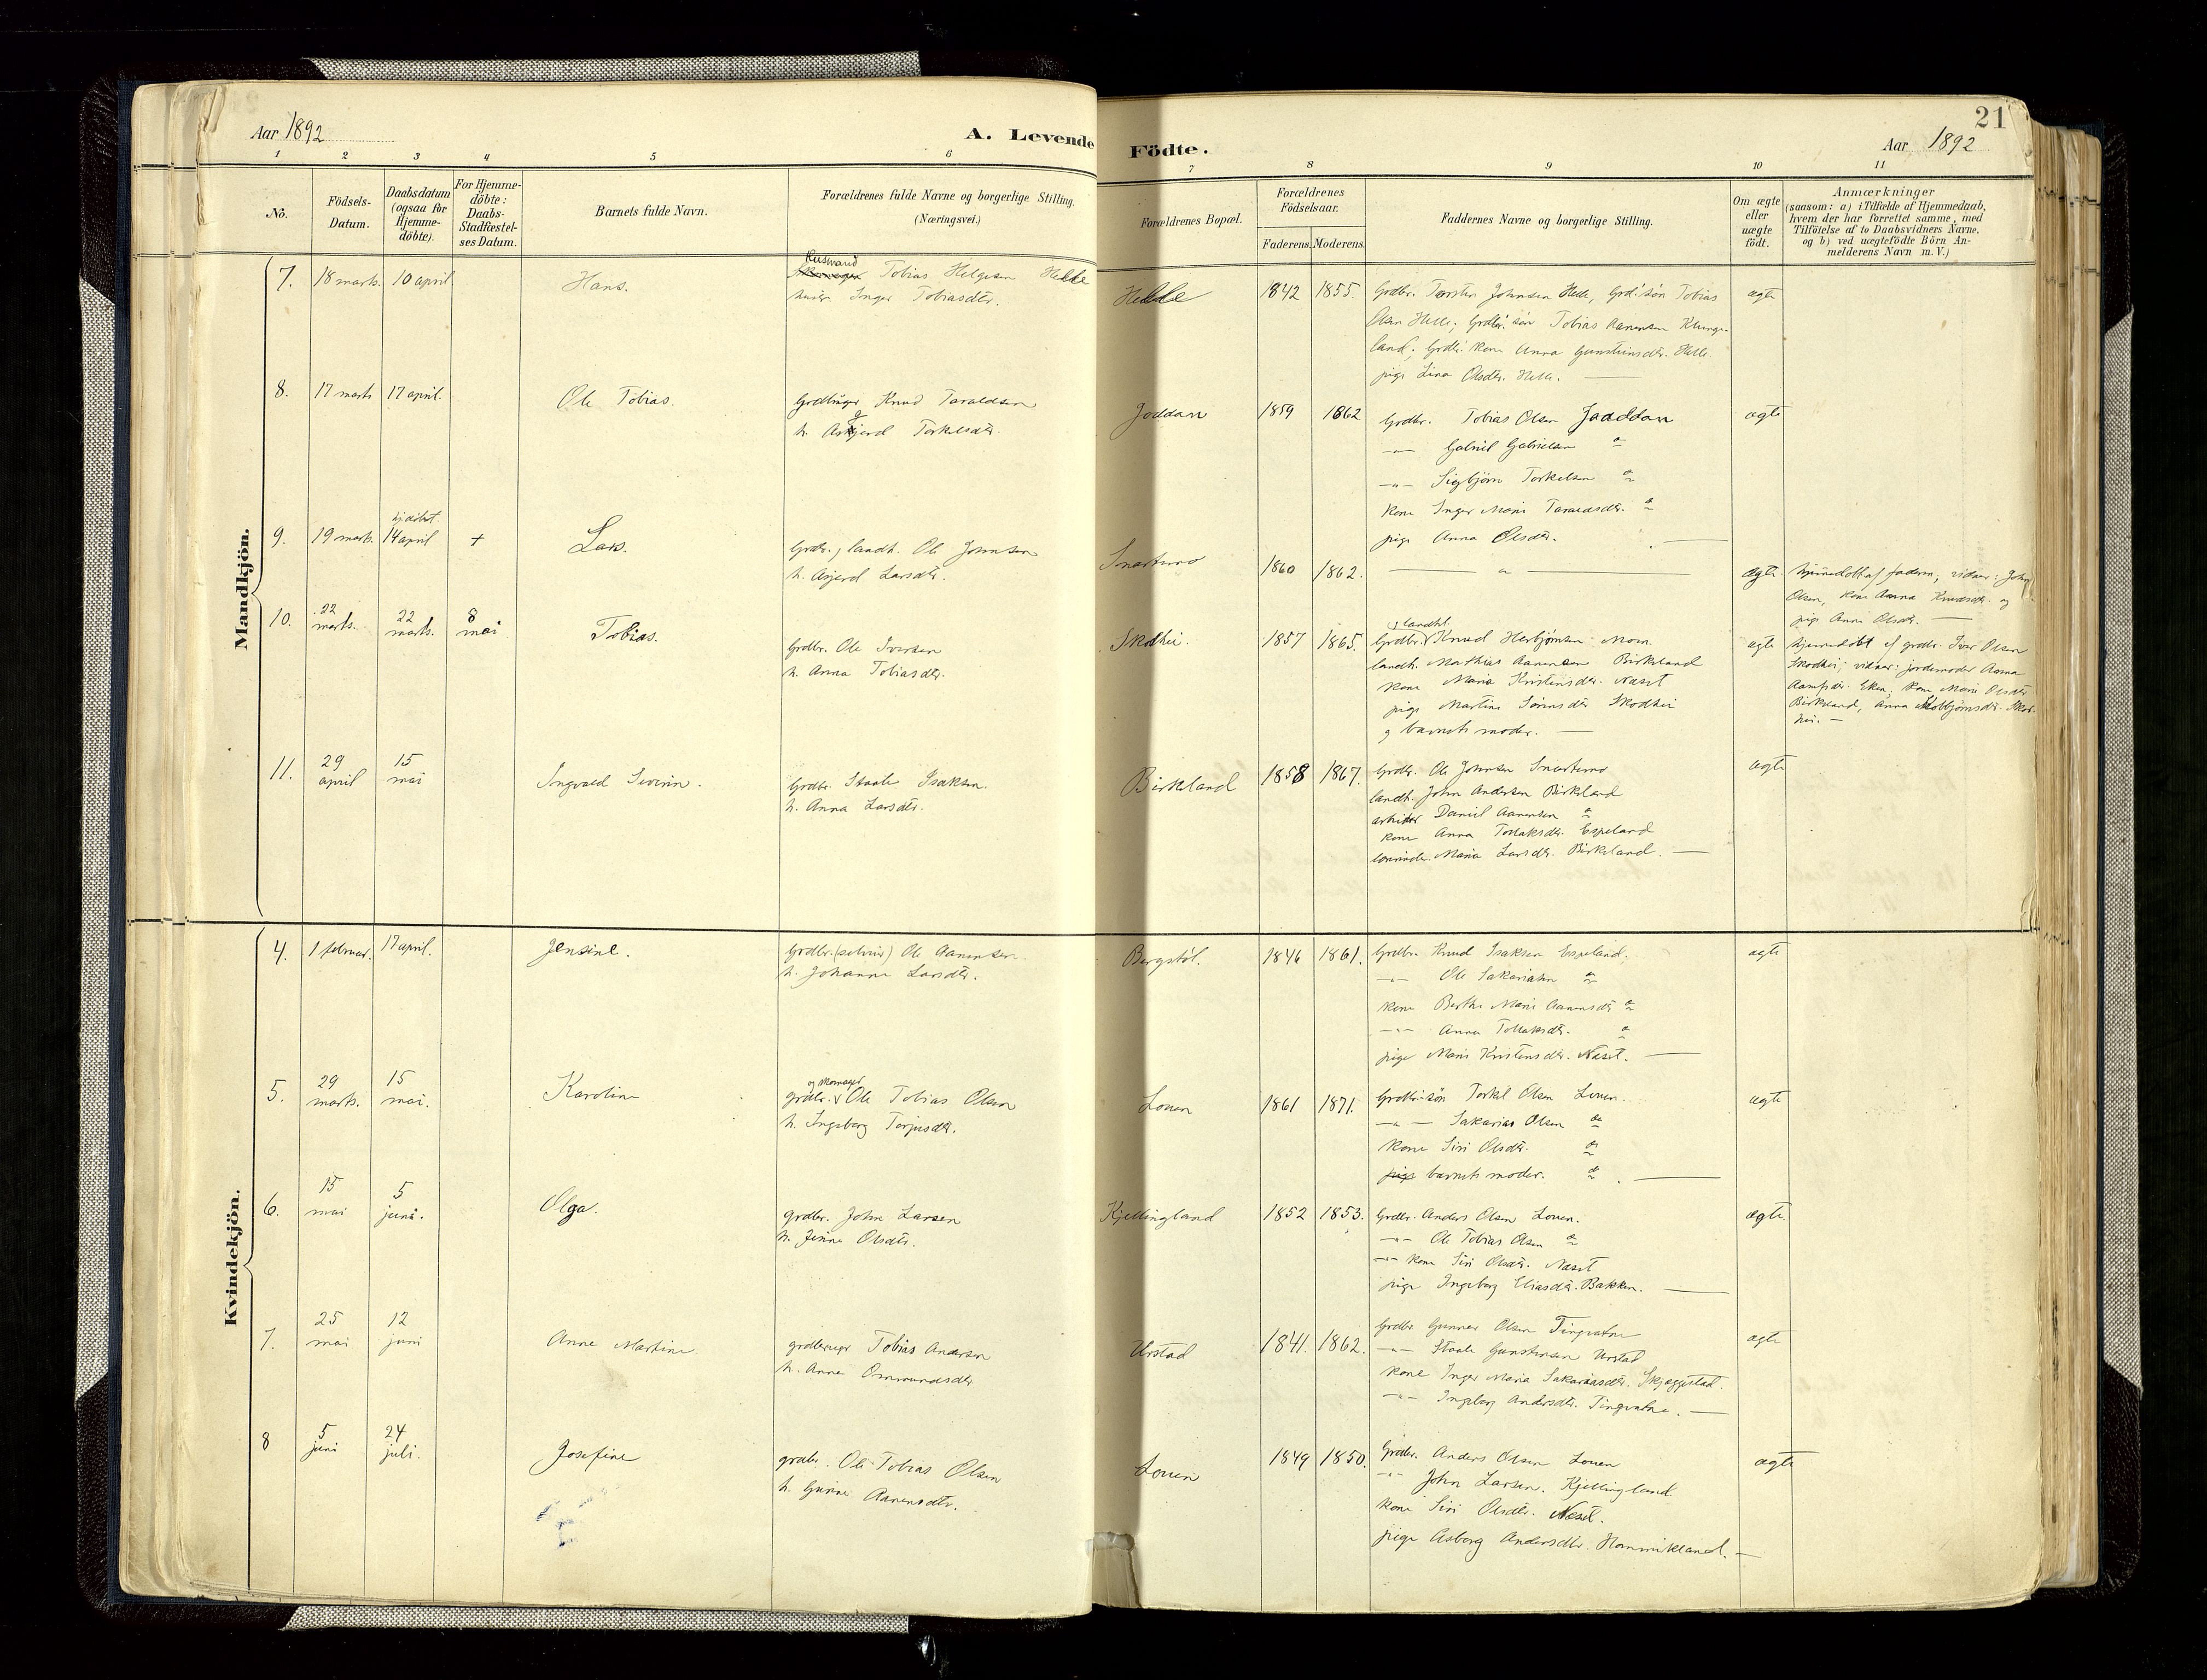 21
Aar 1892
A. Levende Födte.
Aar 1892
1 2 3 4 5 6 7 8 9 10 11
No.
Födsels-Datum.
Daabsdatum (ogsaa for Hjemme-döbte).
For Hjemme-döbte: Daabs-Stadfæstel-ses Datum.
Barnets fulde Navn.
Forældrenes fulde Navne og borgerlige Stilling. (Næringsvei.)
Forældrenes Bopæl.
Forældrenes Födselsaar.
Faderens. Moderens.
Faddernes Navne og borgerlige Stilling.
Om ægte eller uægte födt.
Anmærkninger
(saasom: a) i Tilfælde af Hjemmedaab, hvem der har forrettet samme, med Tilföielse af to Daabsvidners Navne, og b) ved uægtefödte Börn An-melderens Navn m. V.)
Mandkjön.
7. 18 marts. 10 april Hans.
Husmand Tobias Helgesen Helle
Inger Tobiasdtr.
Helle 1842 1855.
Grdbr. Torsten Johnsen Helle, Grdbr. sön Tobias
Olsen Helle; Grdbr. sön Tobias Aanensen Klunge-
land; Grdbr. kone Anna Gunsteinsdtr. Helle.
pige Lina Olsdtr. Helle. —
ægte
8. 17 marts 17 april. Ole Tobias.
Grdbruger Knud Taraldsen
h. Asgjerd Torkelsdtr.
Joddan 1859 1862
Grdbr. Tobias Olsen Jaaddan
—"— Gabriel Gabrielsen "
—"— Sigbjörn Torkelsen "
kone Inger Marie Taraldsdtr. "
pige Anna Olsdtr. —
ægte
9. 19 marts. hj.döbt. 14 april + Lars.
Grdbr. og landh. Ole Johnsen
h. Asjerd Larsdtr.
Snartemo 1860 1862.
— " —
ægte.
hjemedöbt af faderen; vidner: John
Olsen, kone Anna Knudsdtr. og
pige Anna Olsdtr. —
10. 22 marts. 22 marts. 8 mai Tobias.
Grdbr. Ole Iversen
h. Anna Tobiasdtr.
Skodhei. 1857 1865.
Grdbr. og landhl. Knud Herbjörnsen Moen
landh. Mathias Aanensen Birkeland
kone Maria Kristensdtr. Næset
pige Martine Sörensdtr Skodhei
og barnets moder. —
ægte
hjemedöbt af grdbr. Iver Olsen
Skodhei; vidner: jordemoder Anna
Eken, kone Marie Olsdtr
Birkeland, Anna Skod-
hei. —
11. 29 april 15 mai Ingvald Severin.
Grdbr. Staale Isaksen.
h. Anna Larsdtr.
Birkeland 1858 1867.
Grdbr. Ole Johnsen Snartemo
landh. John Andersen Birkeland
arbeider Daniel Aanensen "
kone Anna Tollaksdtr. Espeland
Maria Larsdtr. Birkeland. —
ægte
Kvindekjön.
4. 1 februar. 17 april. Jensine.
Grdbr. Ole Aanensen
h. Johanne Larsdtr.
Bergstöl. 1846 1861.
Grdbr. Knud Isaksen Espeland.
—"— Ole Sakariasen "
kone Berthe Marie Aanensdtr "
—"— Anna Tollaksdtr. "
pige Marie Kristensdtr. Næset. —
ægte
5. 29 marts. 15 mai. Karoline
grdbr. og skomager Ole Tobias Olsen
h. Ingeborg Torjusdtr.
Louen 1861 1871.
Grdbr.sön Torkel Olsen Louen.
—"— Sakarias Olsen "
kone Siri Olsdtr. "
pige barnets moder. " —
ægte
6. 15 mai 5 juni. Olga.
grdbr. John Larsen
h. Olsdtr.
Kjellingland 1852 1853.
Grdbr. Anders Olsen Louen.
—"— Ole Tobias Olsen "
—"— kone Siri Olsdtr. Næset
pige Ingeborg Eliasdtr. Bakken. —
ægte.
7. 25 mai 12 juni Anne Martine
grdbruger Tobias Andersen
h. Anne Ommundsdtr.
Urstad 1841. 1862.
Grdbr Gunnar Olsen Tingvatne
—"— Staale Gunstensen Urstad
kone Inger Maria Sakariasdtr. Skjeggestad.
—"— Ingeborg Andersdtr. Tingvatne. —
ægte
8 5 juni 24 juli. Josefine
grdbr. Ole Tobias Olsen
h. Gurine Aanensdtr.
Louen 1849 1850.
Grdbr. Anders Olsen Louen
—"— John Larsen. Kjellingland
kone Siri Olsdtr. Næset.
pige Asborg Andersdtr. Hommikland. —
ægte